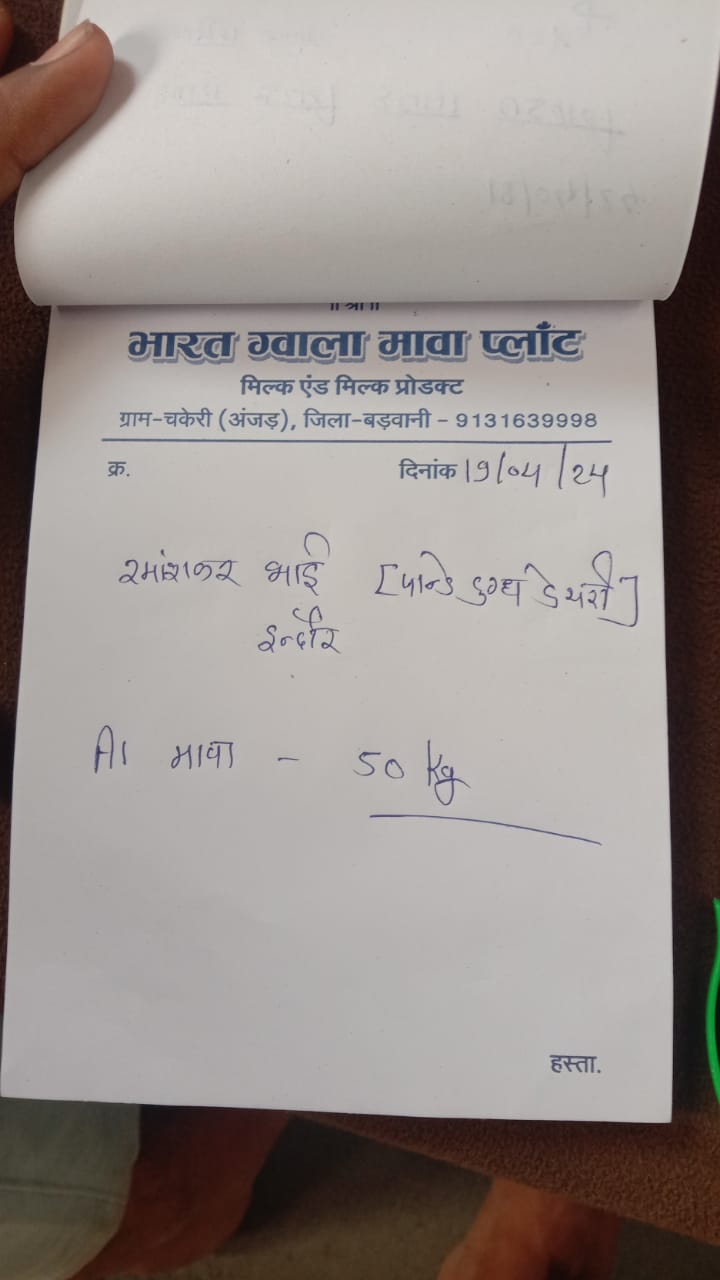 ॥ श्री ॥
भारत ग्वाला मावा प्लाँट
मिल्क एंड मिल्क प्रोडक्ट
ग्राम-चकेरी (अंजड़), जिला-बड़वानी - 9131639998
क्र. दिनांक 19/04/24
रमांशकर भाई [पान्डे दुग्ध डेयरी]
इन्दौर
A1 मावा - 50 kg
हस्ता.